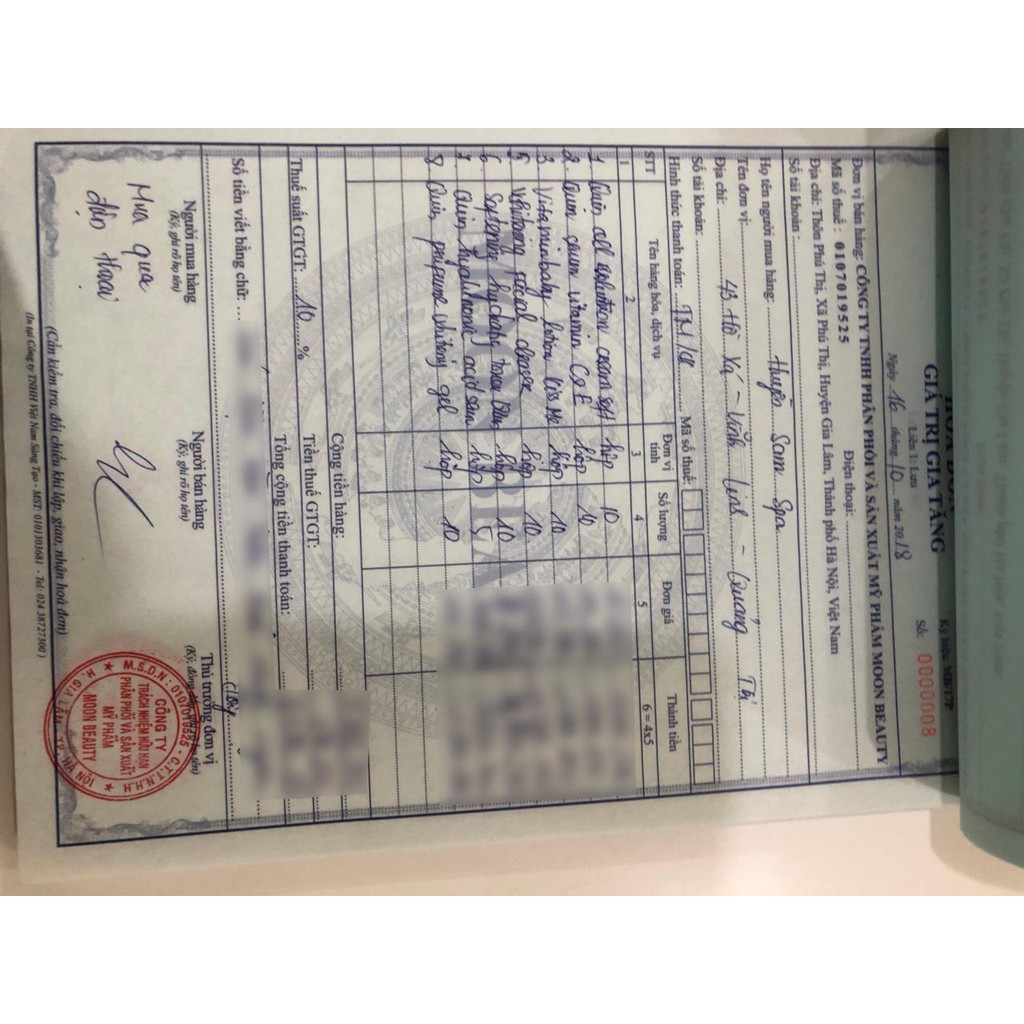 HÓA ĐƠN
GIÁ TRỊ GIA TĂNG
Liên 1: Lưu
Ngày 16 tháng 10 năm 2018
Ký hiệu: MB/17P
Số: 0000008
Đơn vị bán hàng: CÔNG TY TNHH PHÂN PHỐI VÀ SẢN XUẤT MỸ PHẨM MOON BEAUTY
Mã số thuế : 0107019525
Địa chỉ: Thôn Phú Thị, Xã Phú Thị, Huyện Gia Lâm, Thành phố Hà Nội, Việt Nam
Số tài khoản: Điện thoại:
Họ tên người mua hàng: Huyền Sam Spa
Tên đơn vị:
Địa chỉ: 43 Hồ Xá - Vĩnh Linh - Quảng Trị
Số tài khoản:
Hình thức thanh toán: TM/CK Mã số thuế:
STT Tên hàng hóa, dịch vụ Đơn vị tính Số lượng Đơn giá Thành tiền
1 2 3 4 5 6 = 4x5
1. Quin all solution cream hộp 10
2. Quin serum vitamin C&E hộp 10
3. Vitamin body lotion hộp 10
5 Whitening facial cleanse hộp 10
6 hộp 10
7. Quin hyaluronic acid serum hộp 5
8. Quin perfume whitening gel hộp 10
Cộng tiền hàng:
Thuế suất GTGT: 10 % Tiền thuế GTGT:
Tổng cộng tiền thanh toán:
Số tiền viết bằng chữ:
Người mua hàng Người bán hàng Thủ trưởng đơn vị
(Ký, ghi rõ họ tên) (Ký, ghi rõ họ tên)
Mua qua
điện thoại
M.S.D.N: 0107019525 - C.T.T.N.H.H
CÔNG TY
TRÁCH NHIỆM HỮU HẠN
PHÂN PHỐI VÀ SẢN XUẤT
MỸ PHẨM
MOON BEAUTY
H. GIA LÂM - TP. HÀ NỘI
(Cần kiểm tra, đối chiếu khi lập, giao, nhận hoá đơn)
(In tại Công ty TNHH Việt Nam Sáng Tạo - MST: 0101303681 - Tel: 024 38727300 )